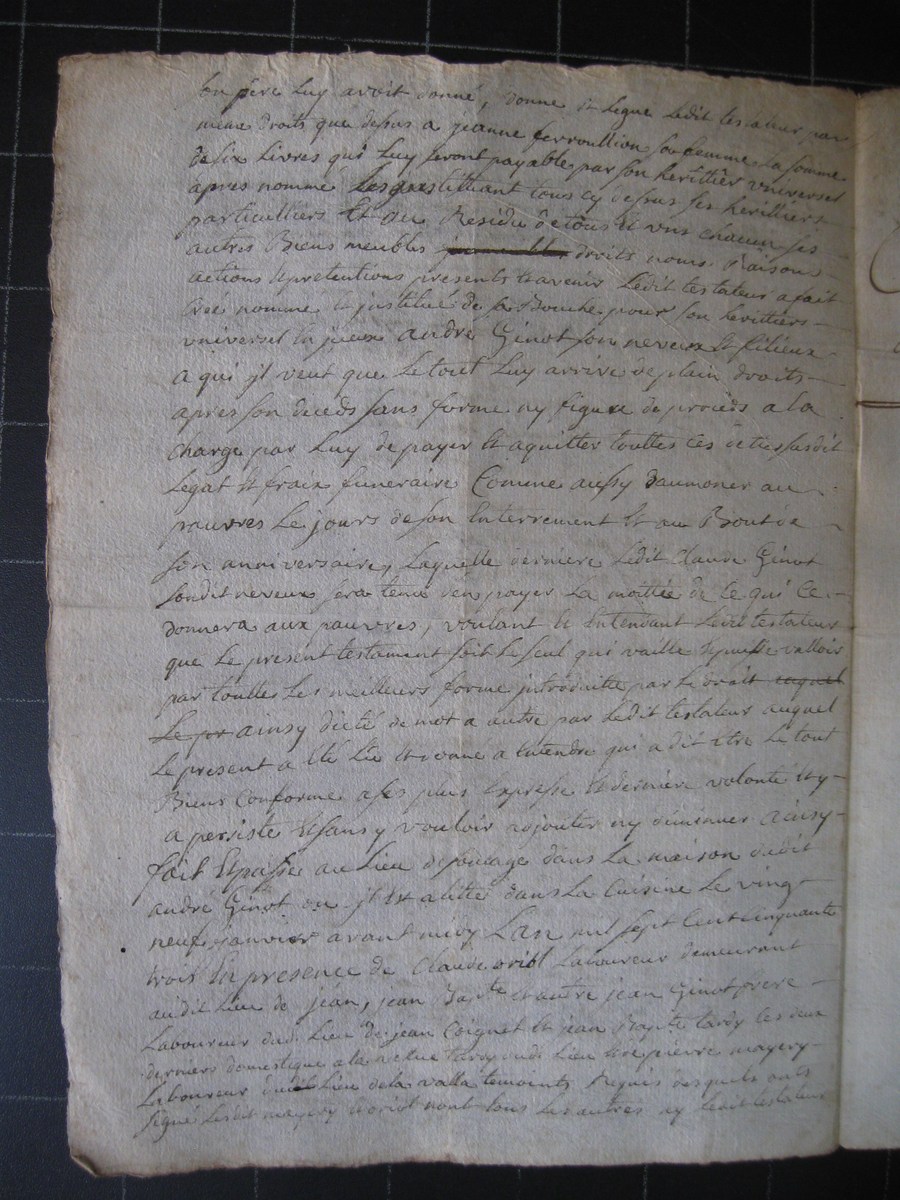 son père luy avoit donné, donne et legue ledit testateur par
meme droits que dessus a jeanne ferroullion sa femme la somme
de six Livres qui luy seront payable par son herittier vniversel
apres nommé Les jnstittuant tous cy dessus ses herittiers
particulliers Et du Residu de tous et vns chacun ses
autres Biens meubles droits noms Raison
actions et pretentions presents et avenir Ledit testateur a fait
créé nommé et jnstitué de sa Bouche pour son herittiers
vniversel andré Ginot son neveux et filieux
a qui jl veut que le tout luy arrive de plain droits
apres son deceds sans forme ny figure de procès a la
charge par Luy de payer et aquitter touttes ces dettes susdit
Legat et fraix funeraire Comme aussy daumoner au
pauvres Le jours de son Enterrement et au Bout de
son anniversaire, Laquelle derniere Ledit Claude Ginot
sondit neveux sera tenu den payer La moittié de ce qui ce
donnera aux pauvres, voulant et Entendant Ledit testateur
que Le present testament soit Le seul qui vaille et puisse valloir
par touttes Les meilleurs forme jntroduitte par Le droit
Le pr ainsy dicté de mot a autre par Ledit testateur auquel
Le present a Eté Lue et donné a Entendre qui a dit Etre Le tout
Biens Conforme a ses plus Expresse et derniere volonté et y
a persisté Et sans y vouloir adjouter ny diminuer ainsy
fait Et passé au Lieu de dans La maison dudit
andré Ginot ou jl Est alitté dans La Cuisine Le vingt
neuf janvier avant midy Lan mil sept Cent Cinquante
trois En presence de Claude oriol Laboureur demeurant
audit Lieu de jean, jean Bapte et autre jean Ginot frere
Laboureur dud. Lieu de jean Coignet et jean Bapte tardy les deux
derniers domestique a tardy dudt Lieu et de pierre mayery
Laboureur dudt Lieu de la valla temoints Requis desquels ont
signé Lesdit mayery et oriol nont tous Les autres ny Ledit testateur